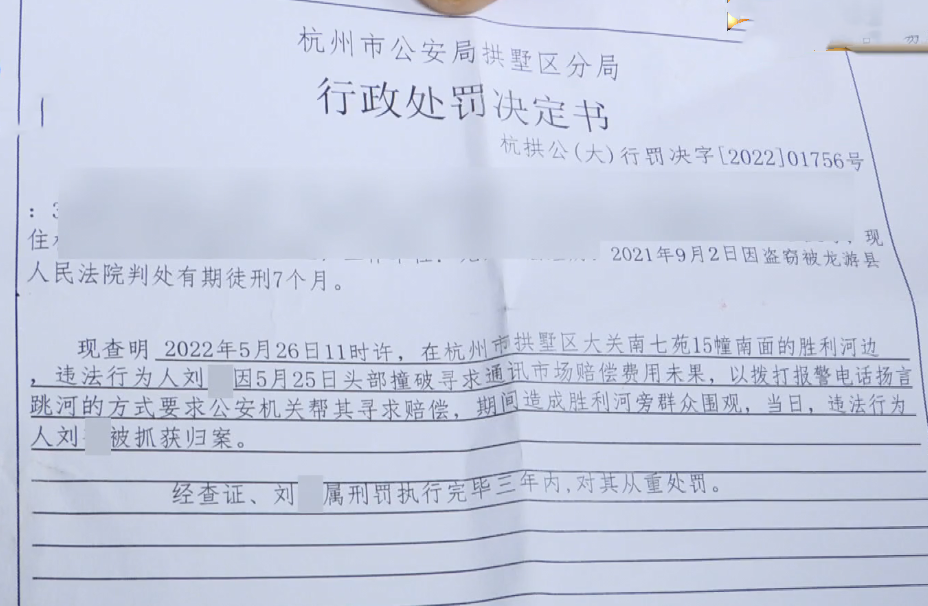 杭州市公安局拱墅区分局
行政处罚决定书
杭拱公(大)行罚决字[2022]01756号
：3
住
现
2021年9月2日因盗窃被龙游县
人民法院判处有期徒刑7个月。
现查明 2022年5月26日11时许，在杭州市拱墅区大关南七苑15幢南面的胜利河边
，违法行为人刘 因5月25日头部撞破寻求通讯市场赔偿费用未果，以拨打报警电话扬言
跳河的方式要求公安机关帮其寻求赔偿，期间造成胜利河旁群众围观，当日，违法行为
人刘 被抓获归案。
经查证、刘 属刑罚执行完毕三年内,对其从重处罚。